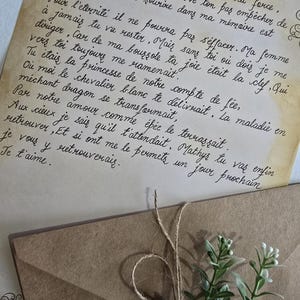 force,
dans ma mémoire est
ton par empêcher de
l'éternité il ne pourra par s'effacer. Ma femme
à jamais tu va rester. Mais sans toi où dois je me
diriger, Car de ma boussole ta joie était la clef. Qui
vers toi toujours me ramenait.
Tu étais la princesse de notre compte de fée,
Où moi le chevalier blanc te délivrait. La maladie en
méchant dragon se transformait,
Par notre amour comme épée le terrassait.
Aux cieux je sais qu'il t'attendait, Mathys tu vas enfin
retrouver, Et si ont me le permets un jour prochain
je vous y retrouverais.
Je t'aime.